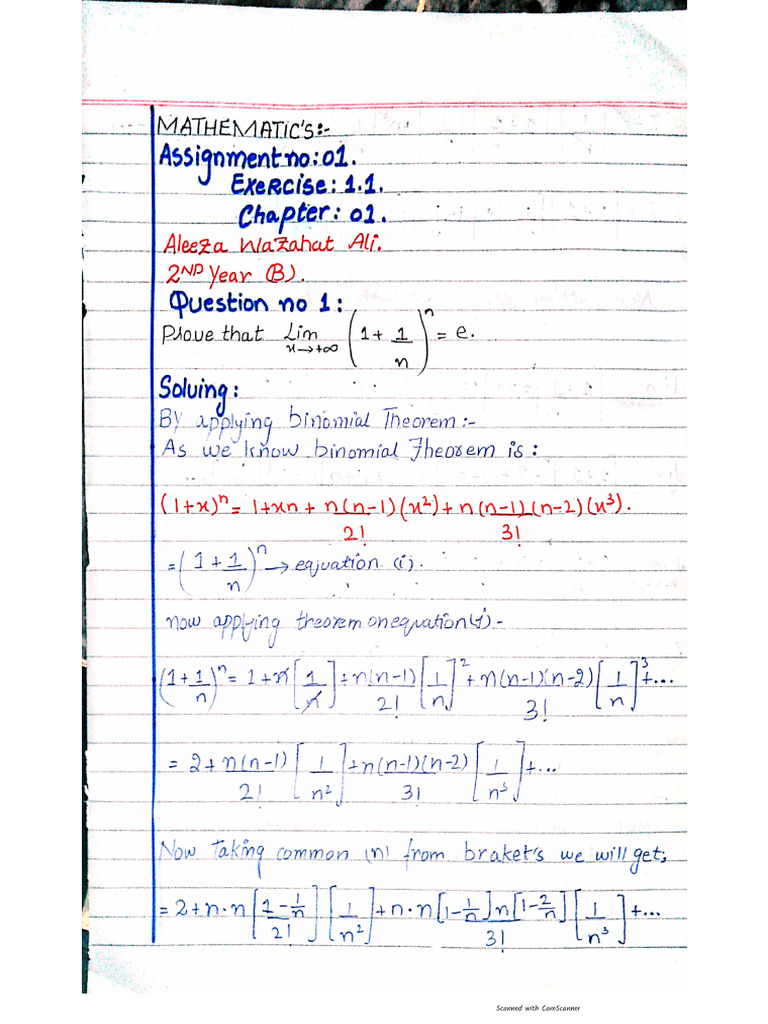 MATHEMATIC'S:-
Assignment no: 01.
Exercise: 1.1.
Chapter: 01.
Aleeza Wazahat Ali.
2ND Year (B).
Question no 1:
Prove that Lim x→+∞ (1+1/n)^n = e.
Solving:
By applying binomial Theorem:-
As we know binomial Theorem is:
(1+x)^n = 1+xn+n(n-1)(x²)/2!+n(n-1)(n-2)(x³)/3!.
=(1+1/n)^n → eqjuation (i).
now applying theorem on equation(i)-
(1+1/n)^n = 1+n[1/n]+n(n-1)/2![1/n]²+n(n-1)(n-2)/3![1/n]³+...
= 2+n(n-1)/2![1/n²]+n(n-1)(n-2)/3![1/n³]+...
Now taking common (n) from braket's we will get;
=2+n·n[1-1/n/2!][1/n²]+n·n[1-1/n]n[1-2/n]/3![1/n³]+...
Scanned with CamScanner